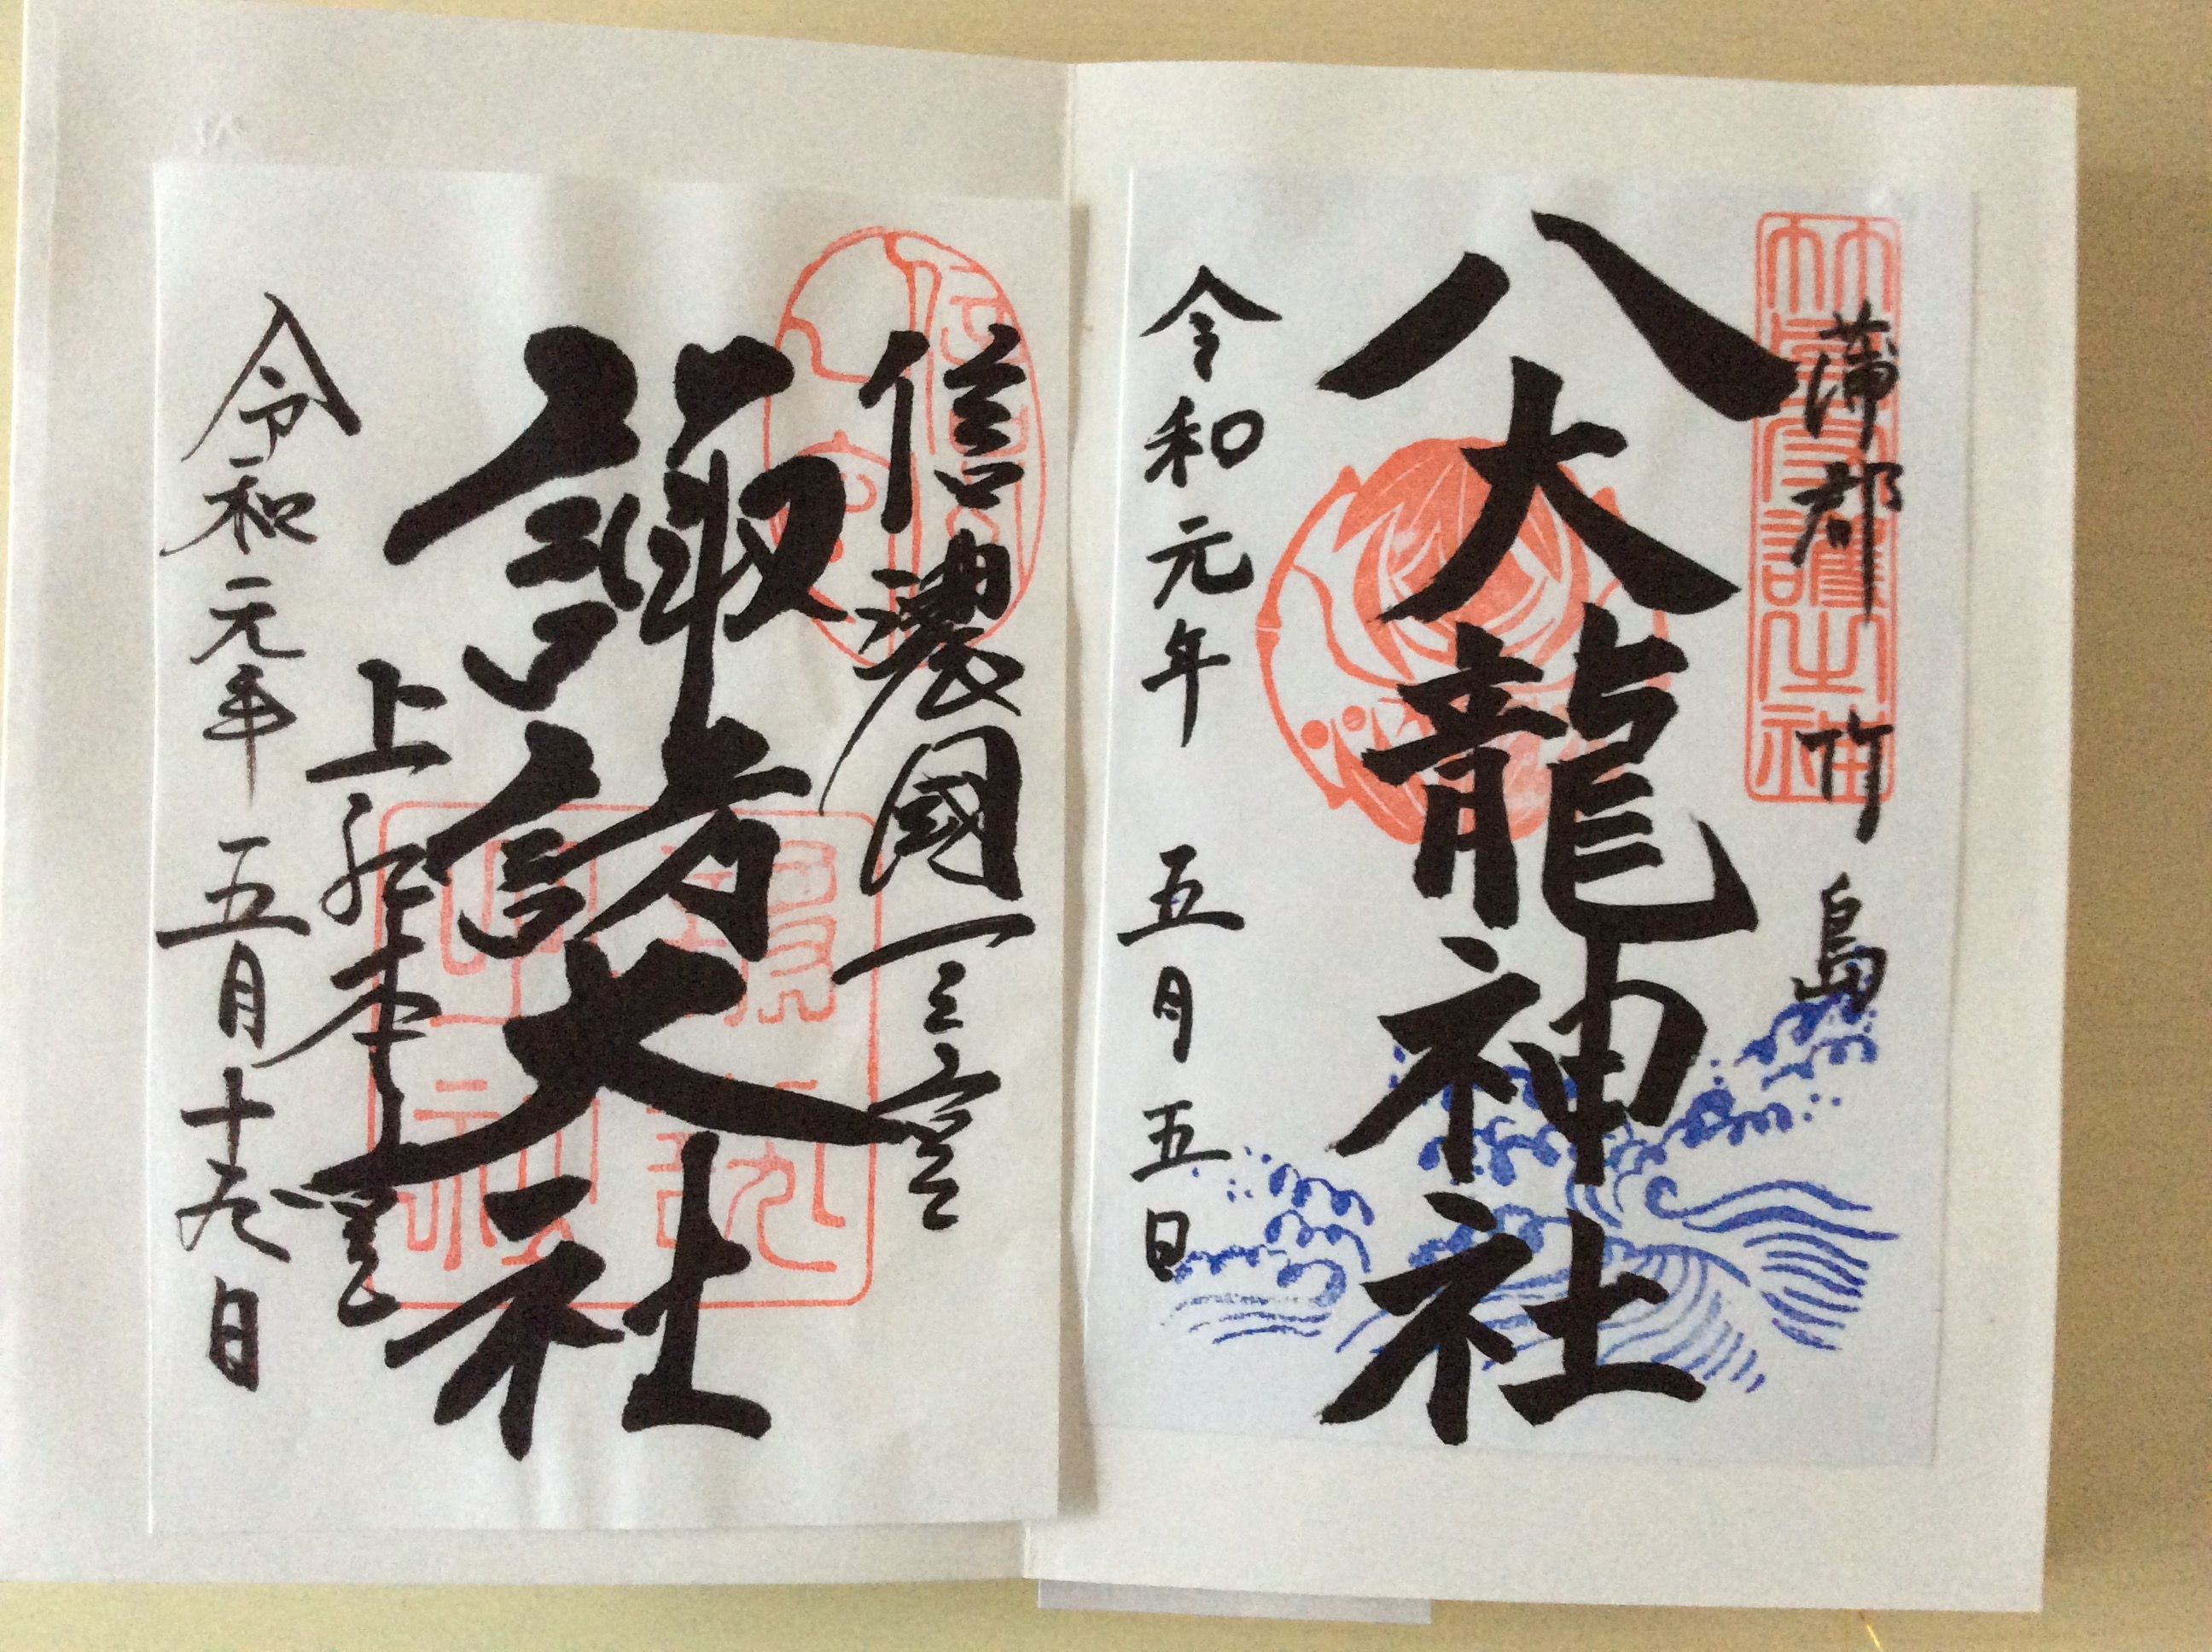 蒲郡 竹島
八大龍神社
令和元年 五月五日
信濃國一之宮
諏訪大社
上社本宮
令和元年 五月十九日